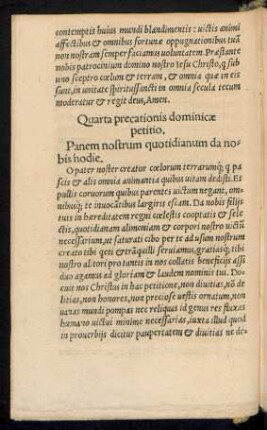 contemptis huius mundi blandimentis: uictis animi
affectibus & omnibus fortunæ oppugnationibus tuā
non nostram semper faciamus uoluntatem. Præstante
nobis patrocinium domino nostro Iesu Christo, q̃ sub
uno sceptro cœlum & terram, & omnia quæ in eis
sunt, in unitate spiritussancti in omnia secula tecum
moderatur & regit deus, Amen.
Quarta precationis dominicæ
petitio,
Panem nostrum quotidianum da no-
bis hodie,
O pater noster creator cœlorum terrarumq; q̃ pa
scis & alis omnia animantia quibus uitam dedisti. Et
pullis coruorum quibus parentes uictum negant, om-
nibusq; te inuocātibus largiris escam. Da nobis filijs
tuis in hæreditatem regni cœlestis cooptatis & sele-
ctis, quotidianam alimoniam & corpori nostro uictū
necessarium, ut saturati cibo per te ad usum nostrum
creato tibi q̃eti & trāquilli seruiamus, gratiasq; tibi
nostro altori pro tantis in nos collatis beneficijs assi
duo agamus ad gloriam & laudem nominis tui. Do-
cuit nos Christus in hac petitione, non diuitias, nō de
litias, non honores, non preciose uestis ornatum, non
uanas mundi pompas nec reliquas id genus res fluxas
humano uictui minime necessarias, iuxta illud quod
in prouerbijs dicitur paupertatem & diuitias ne de-